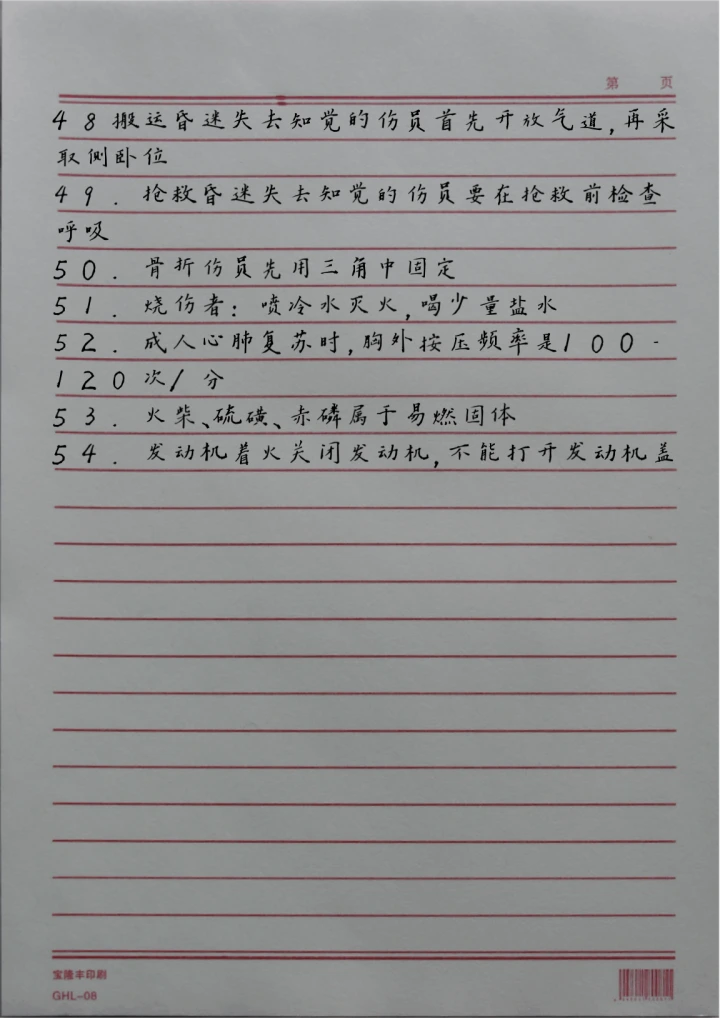 第 页
48搬运昏迷失去知觉的伤员首先开放气道,再采
取侧卧位
49.抢救昏迷失去知觉的伤员要在抢救前检查
呼吸
50.骨折伤员先用三角中固定
51.烧伤者:喷冷水灭火,喝少量盐水
52.成人心肺复苏时,胸外按压频率是100-
120次/分
53.火柴、硫磺、赤磷属于易燃固体
54.发动机着火关闭发动机,不能打开发动机盖
宝隆丰印刷
GHL-08